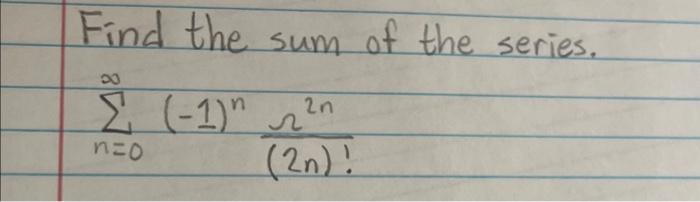 Find the sum of the series.
∞
Σ (-1)ⁿ π²ⁿ
n=0 (2n)!